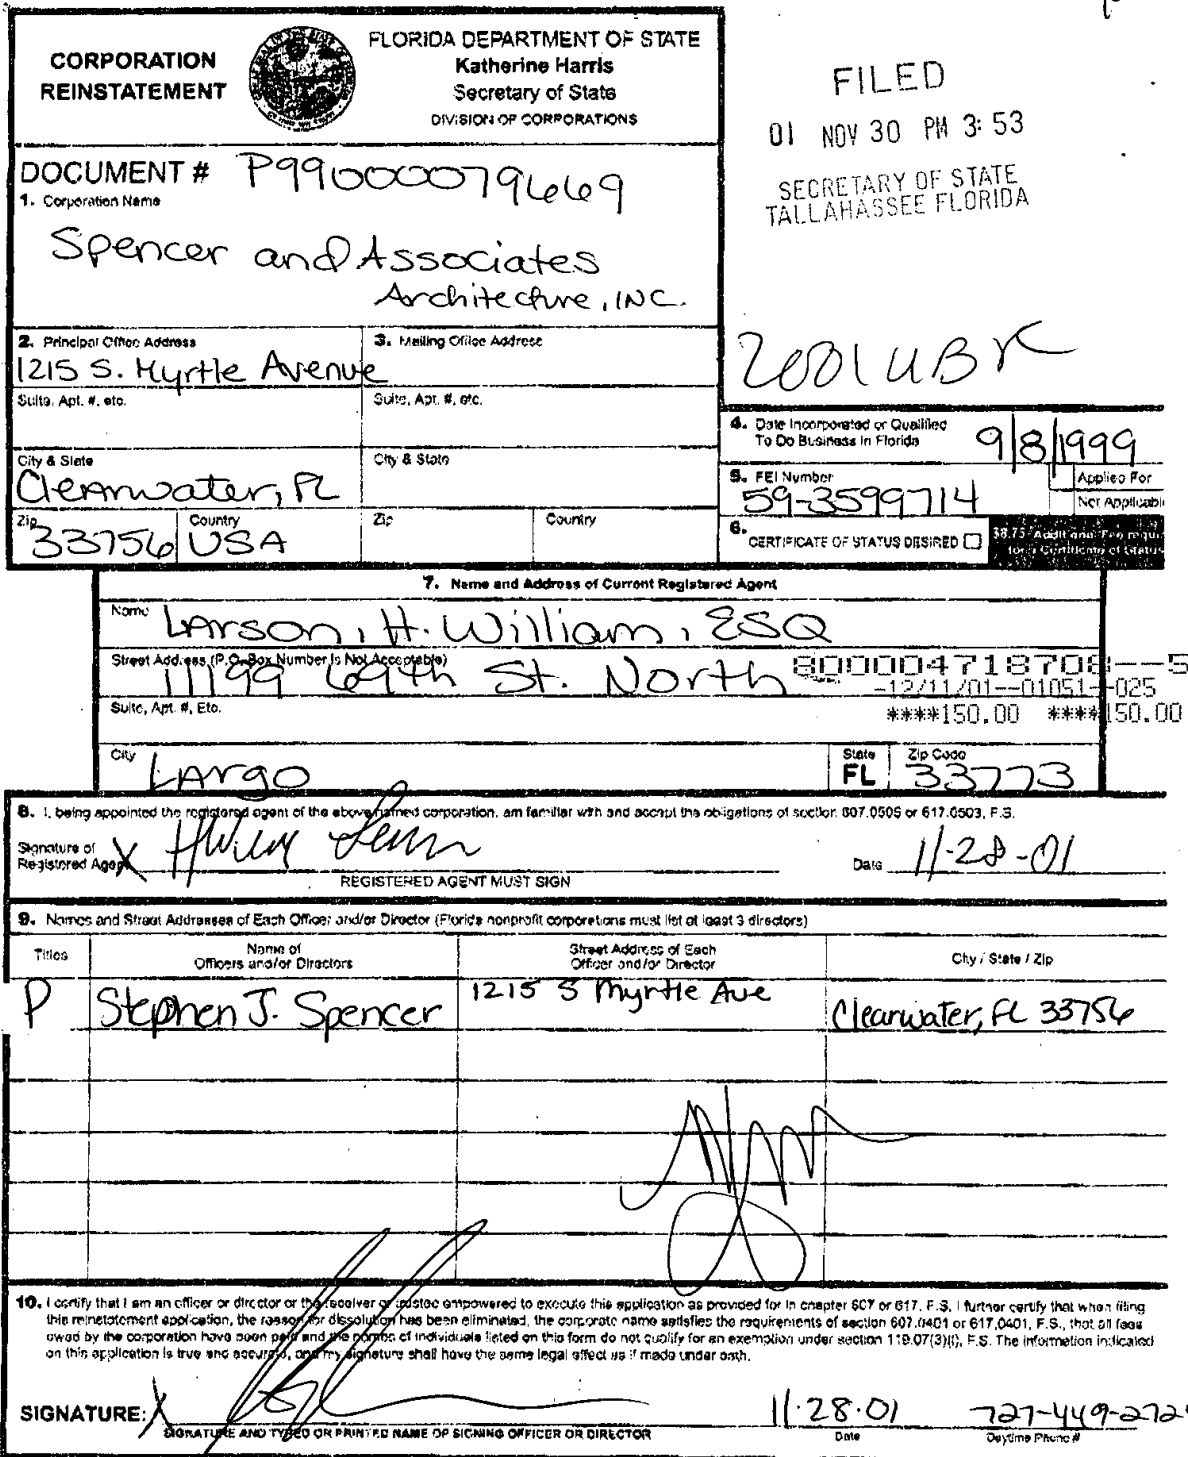 CORPORATION
REINSTATEMENT
FLORIDA DEPARTMENT OF STATE
Katherine Harris
Secretary of State
DIVISION OF CORPORATIONS
FILED
01 NOV 30 PM 3:53
SECRETARY OF STATE
TALLAHASSEE FLORIDA
DOCUMENT # P99000079669
1. Corporation Name
Spencer and Associates
Architecture, INC.
2. Principal Office Address
1215 S. Myrtle Avenue
3. Mailing Office Address
Suite, Apt. #, etc.
Suite, Apt. #, etc.
City & State
Clearwater, FL
City & State
Zip
33756
Country
USA
Zip
Country
2001 UBR
4. Date Incorporated or Qualified
To Do Business in Florida
9/8/1999
5. FEI Number
59-3599714
Applied For
Not Applicabl
6. CERTIFICATE OF STATUS DESIRED
$8.75 Additional Fee requi
for a Certificate of Status
7. Name and Address of Current Registered Agent
Name
Larson, H. William, ESQ
Street Address (P.O. Box Number Is Not Acceptable)
11199 69th St. North
800004718708--5
-12/11/01--01051--025
****150.00 ****150.00
Suite, Apt. #, Etc.
City
LARGO
State
FL
Zip Code
33773
8. I, being appointed the registered agent of the above named corporation, am familiar with and accept the obligations of section 607.0505 or 617.0503, F.S.
Signature of
Registered Agent X
Date 11-28-01
REGISTERED AGENT MUST SIGN
9. Names and Street Addresses of Each Officer and/or Director (Florida nonprofit corporations must list at least 3 directors)
Titles
Name of
Officers and/or Directors
Street Address of Each
Officer and/or Director
City / State / Zip
P
Stephen J. Spencer
1215 S Myrtle Ave
Clearwater, FL 33756
10. I certify that I am an officer or director or the receiver or trustee empowered to execute this application as provided for in chapter 607 or 617, F.S. I further certify that when filing
this reinstatement application, the reason for dissolution has been eliminated, the corporate name satisfies the requirements of section 607.0401 or 617.0401, F.S., that all fees
owed by the corporation have been paid and the names of individuals listed on this form do not qualify for an exemption under section 119.07(3)(i), F.S. The information indicated
on this application is true and accurate, and my signature shall have the same legal effect as if made under oath.
SIGNATURE: X
11.28.01
727-449-272
SIGNATURE AND TYPED OR PRINTED NAME OF SIGNING OFFICER OR DIRECTOR
Date
Daytime Phone #